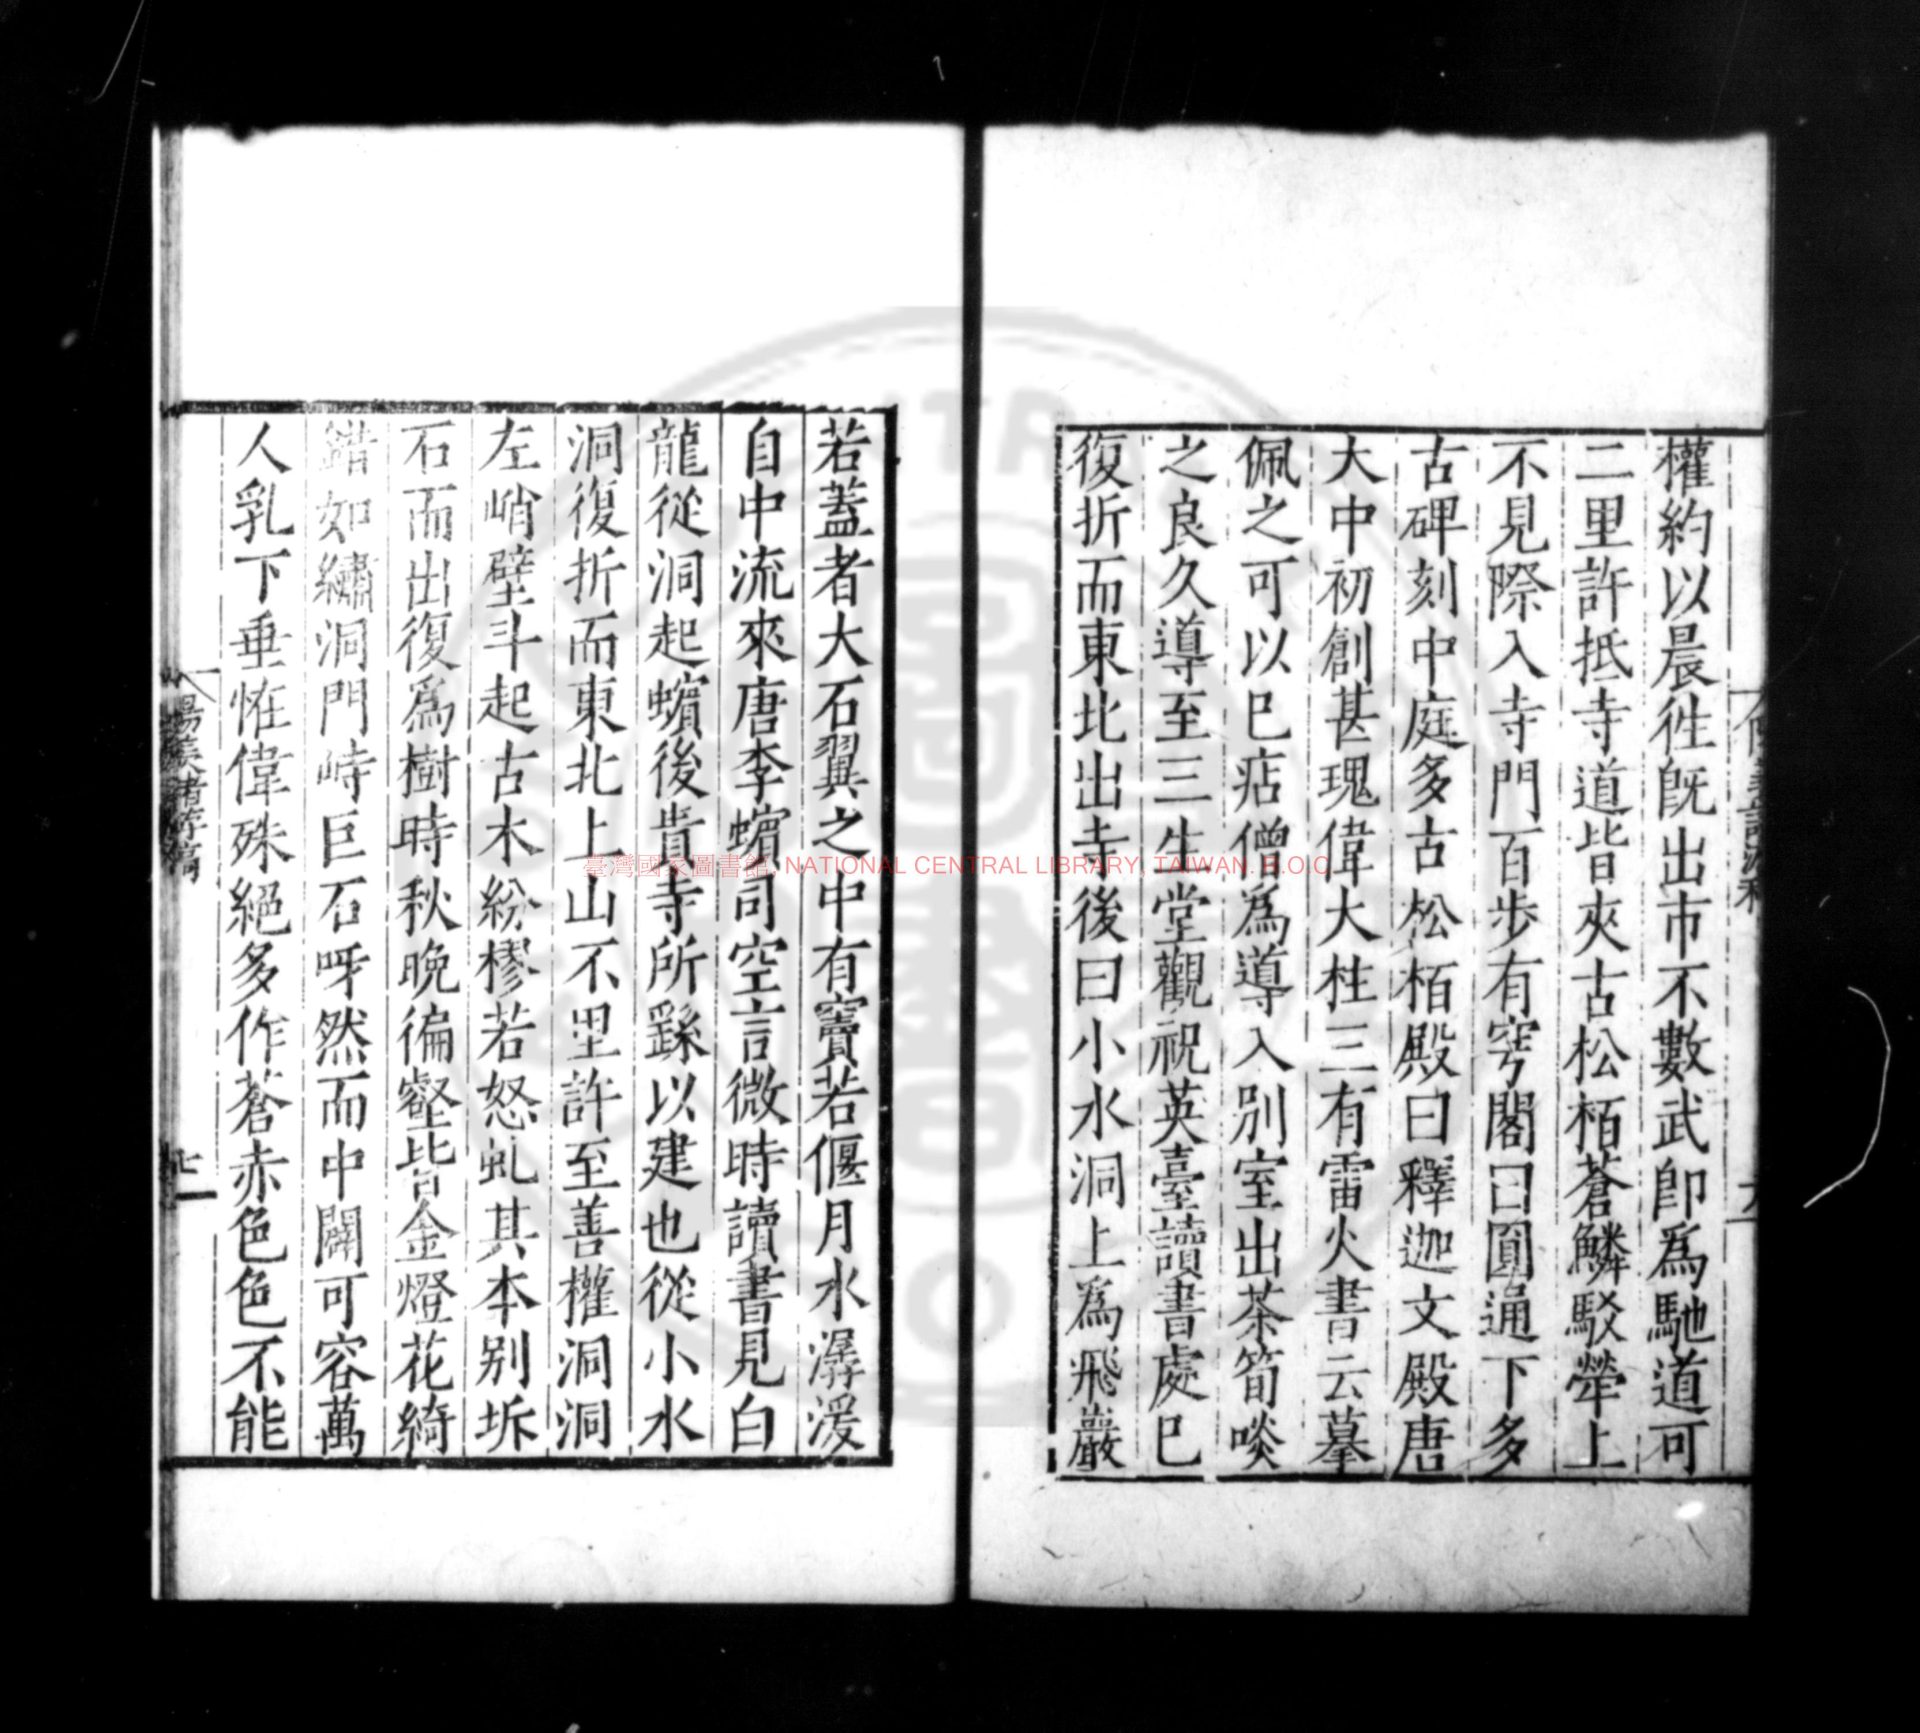 權約以晨徃旣出市不數武卽爲馳道可
二里許抵寺道皆夾古松栢蒼鱗駁犖上
不見際入寺門百步有穹閣曰圓通下多
古碑刻中庭多古松栢殿曰釋迦文殿唐
大中初創甚瑰偉大柱三有雷火書云摹
佩之可以已痁僧爲導入別室出茶筍啖
之良久導至三生堂觀祝英臺讀書處已
復折而東北出寺後曰小水洞上爲飛巖
若蓋者大石翼之中有竇若偃月水潺湲
自中流來唐李蠙司空言微時讀書見白
龍從洞起蠙後貴寺所繇以建也從小水
洞復折而東北上山不里許至善權洞洞
左峭壁斗起古木紛樛若怒虬其本別坼
石而出復爲樹時秋晚徧壑皆金燈花綺
錯如繡洞門峙巨石呀然而中闢可容萬
人乳下垂恠偉殊絕多作蒼赤色色不能
陽羨諸游稿
臺灣國家圖書館, NATIONAL CENTRAL LIBRARY, TAIWAN. R.O.C